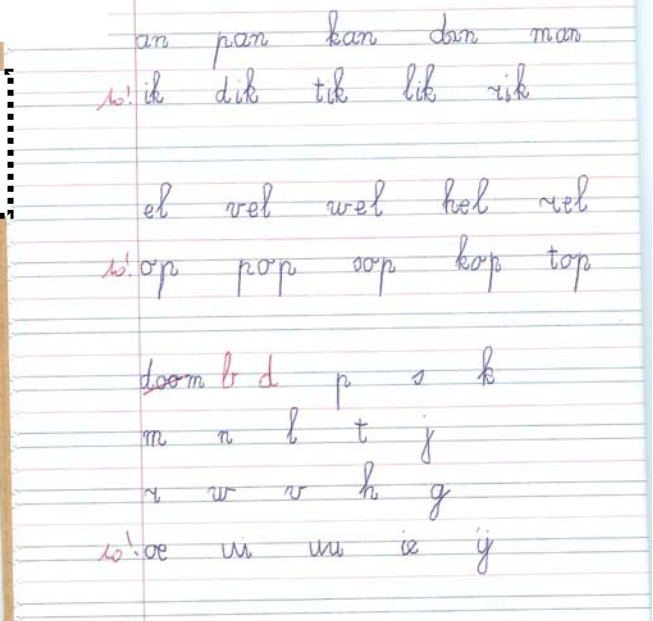 an pan kan dan man
10! ik dik tik lik rik
el vel wel hel rel
10! op pop sop kop top
doom b d p s k
m n l t j
r w v h g
10! oe ui uu ie ij